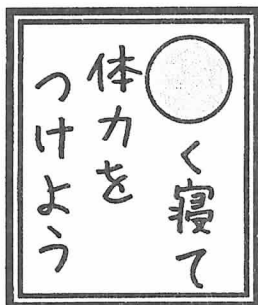 く寝て
体力を
つけよう